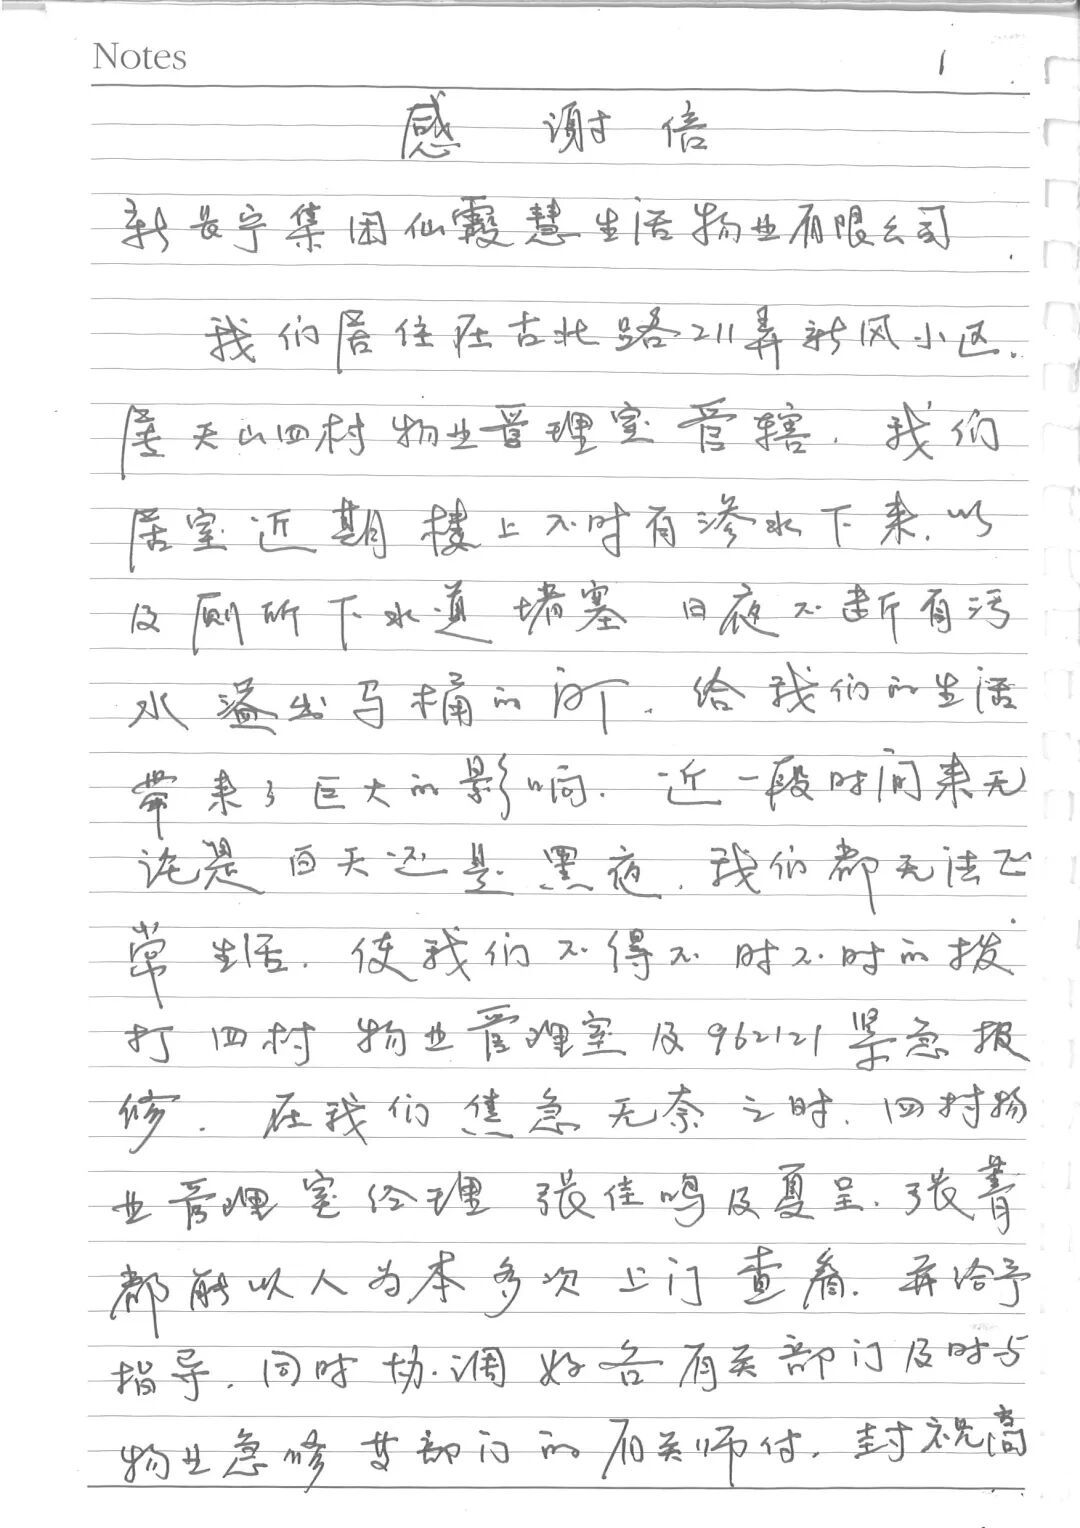 Notes
1
感谢信
新长宁集团仙霞慧生活物业有限公司
我们居住在古北路211弄新风小区.
属天山四村物业管理室管辖.我们
居室近期楼上不时有渗水下来.以
及厕所下水道堵塞日夜不断有污
水溢出马桶的 .给我们的生活
带来了巨大的影响.近一段时间来无
论是白天还是黑夜.我们都无法正
常生活.使我们不得不时不时的拨
打四村物业管理室及962121紧急报
修.在我们焦急无奈之时.四村物
业管理室经理张佳鸣及夏呈.张菁
都能以人为本多次上门查看.并给予
指导.同时协调好各有关部门及时与
物业急修 部门的有关师付.封祝高